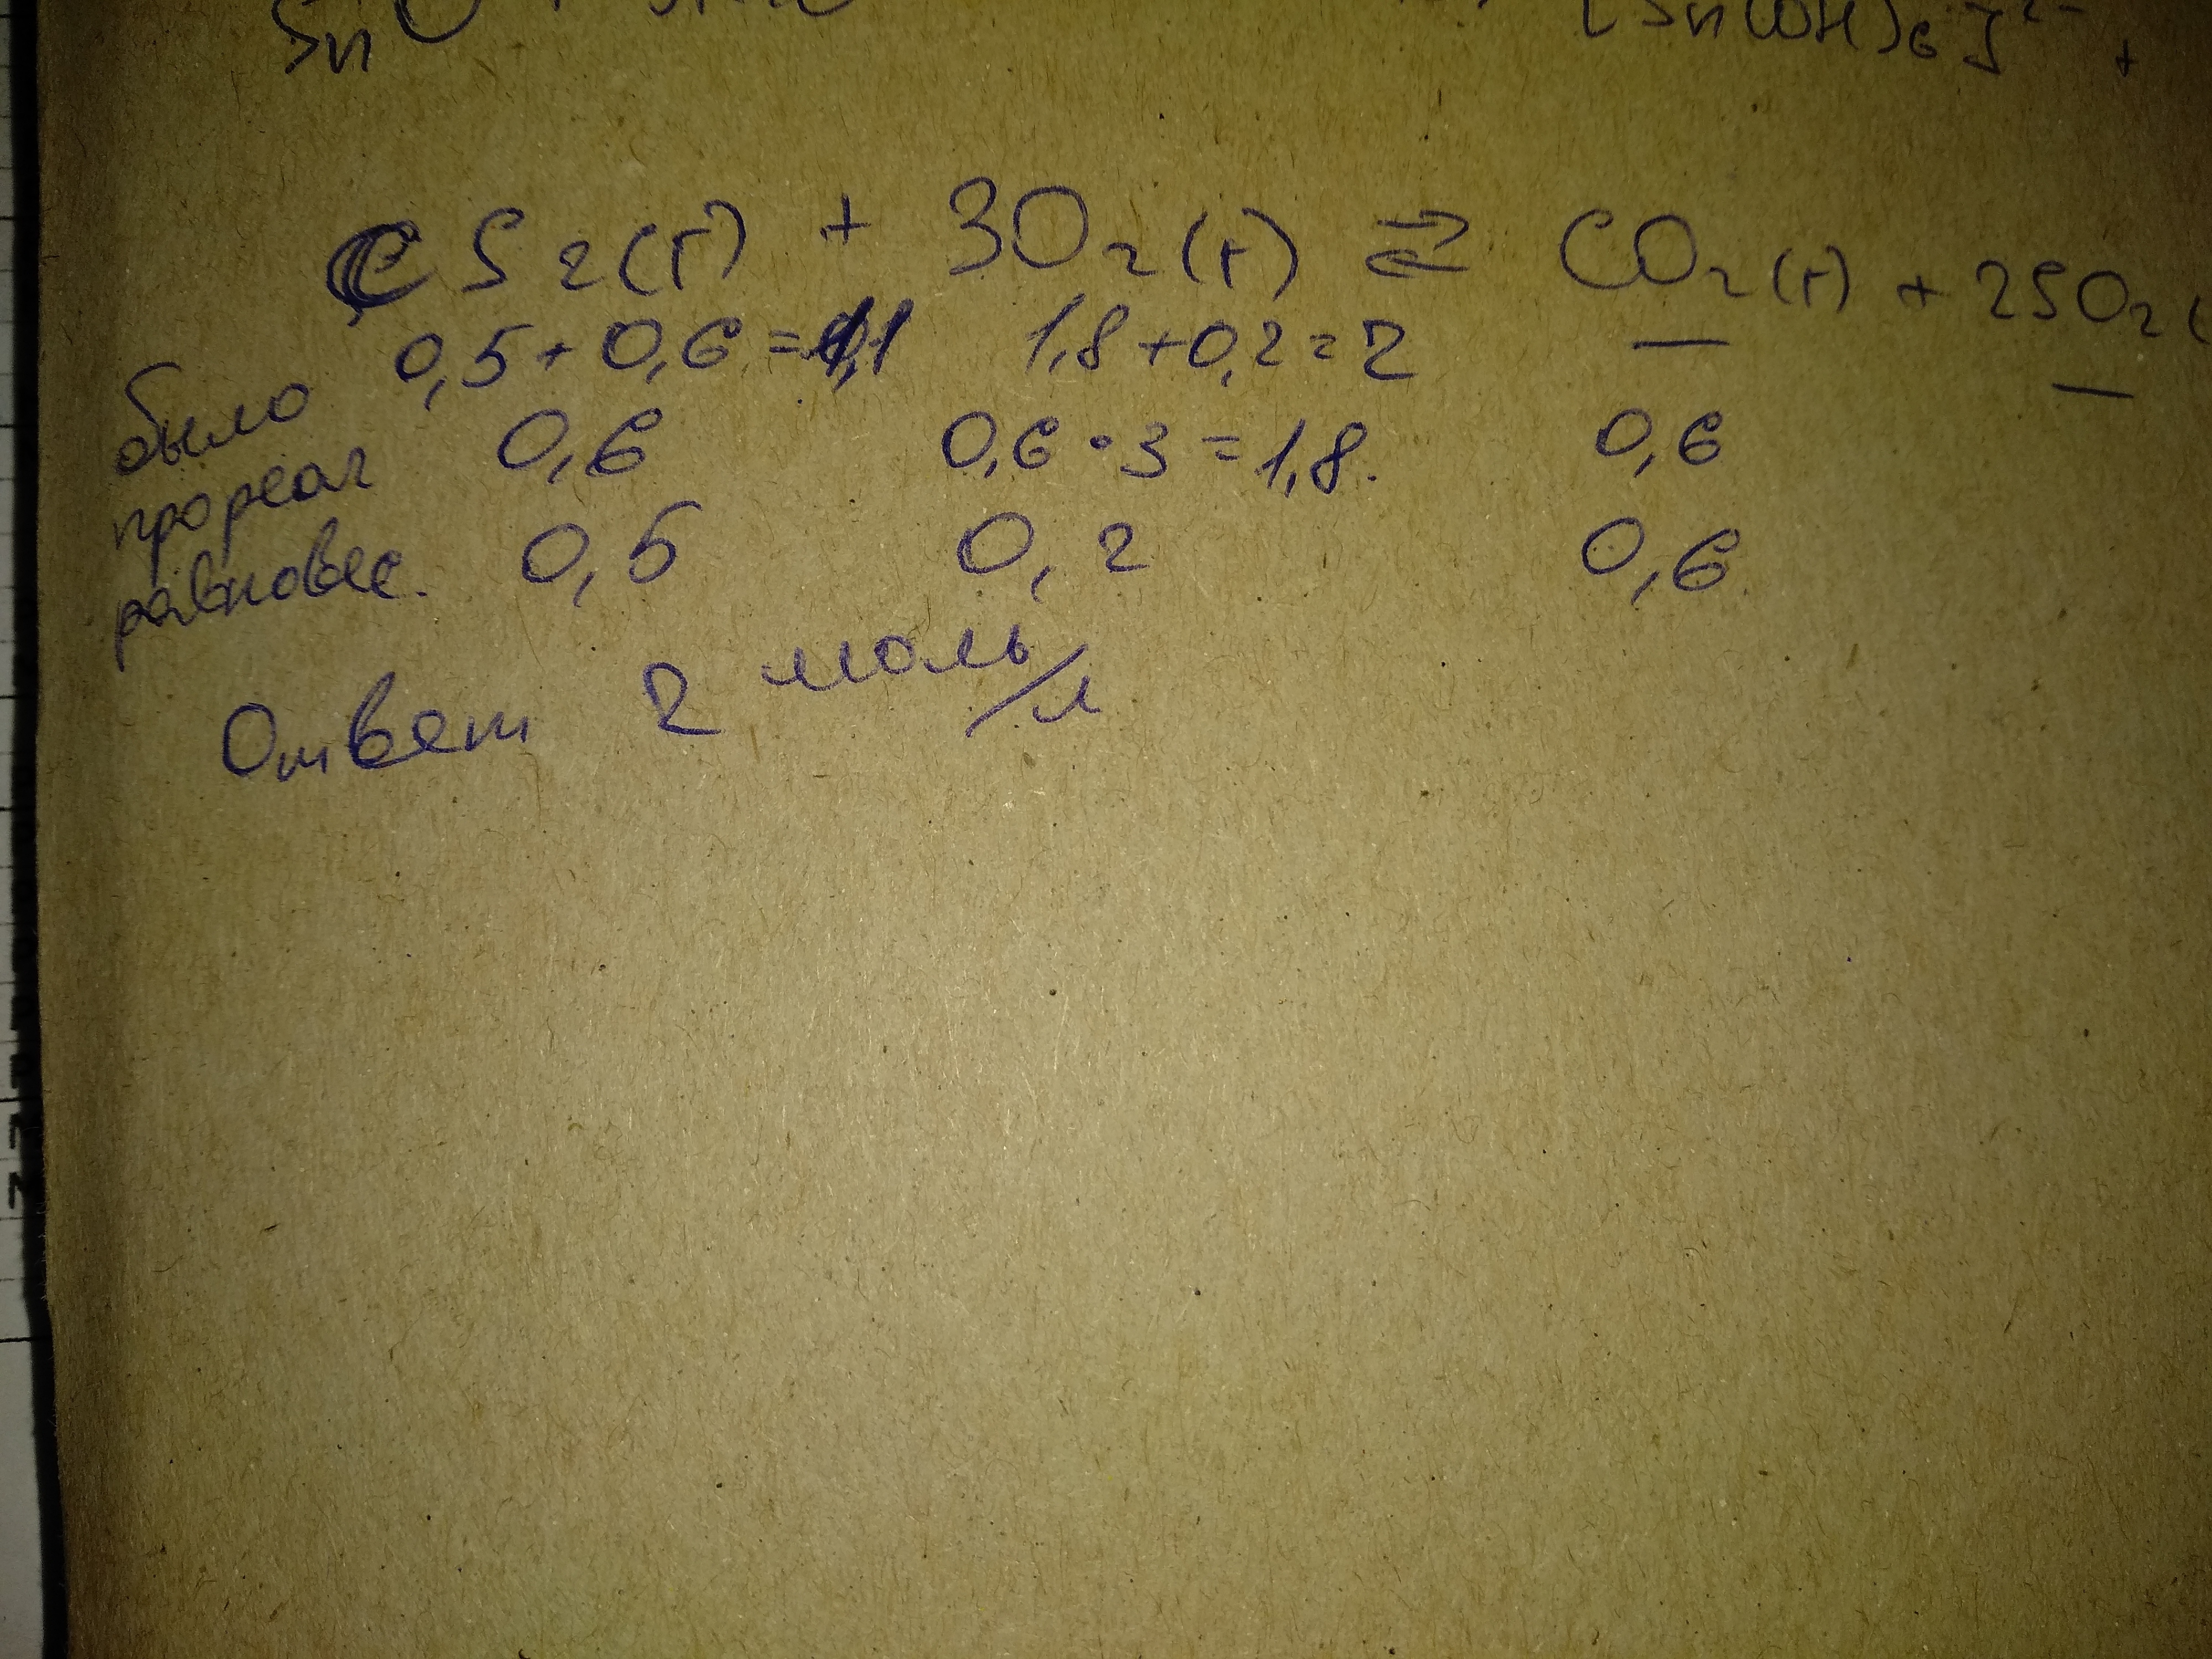 SnO +
[Sn(OH)6]2- +
CS2(г) + 3O2(г) ⇄ CO2(г) + 2SO2(
было 0,5+0,6=1,1 1,8+0,2=2 — —
прореаг 0,6 0,6·3=1,8. 0,6
равновес. 0,5 0,2 0,6
Ответ 2 моль/л